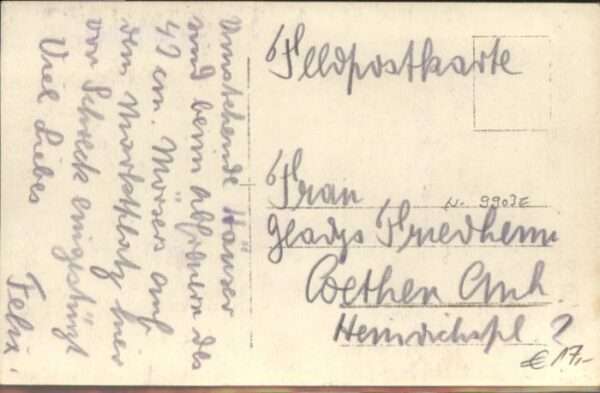 Umstehende Häuser
sind beim abfeuern des
42 cm. Mörsers auf
dem Marktplatz hier
vor Schreck eingestürzt
Viel Liebes
Felix.
Feldpostkarte
Frau
N. 9903E
Gladys Friedheim
Coethen Anh.
Heinrichspl. 2
€ 17,-